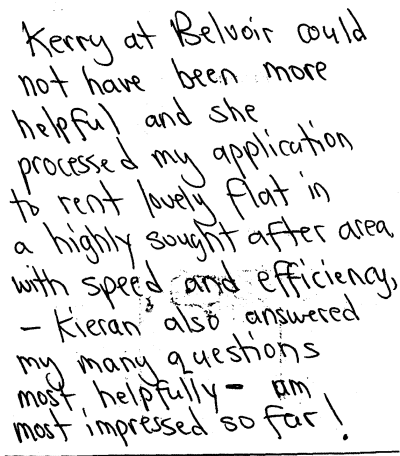 Kerry at Belvoir could
not have been more
helpful and she
processed my application
to rent lovely flat in
a highly sought after area
with speed and efficiency,
- Kieran also answered
my many questions
most helpfully - am
most impressed so far!